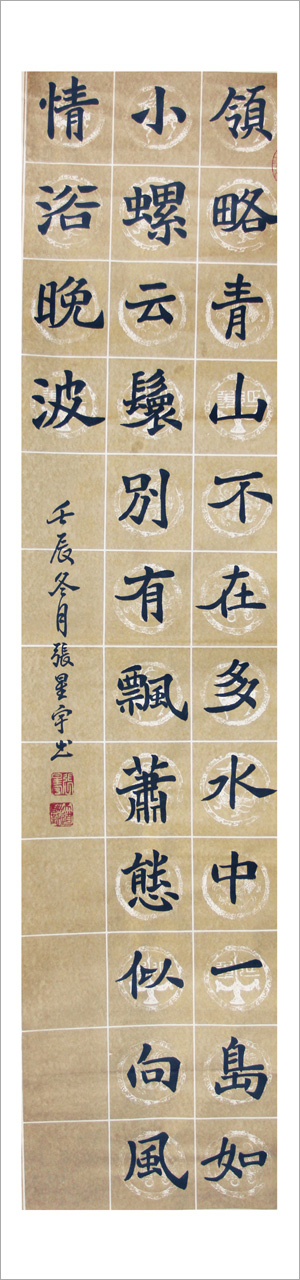 領略青山不在多水中一島如
小螺云鬟別有飄蕭態似向風
情浴晚波
壬辰冬月張星宇书